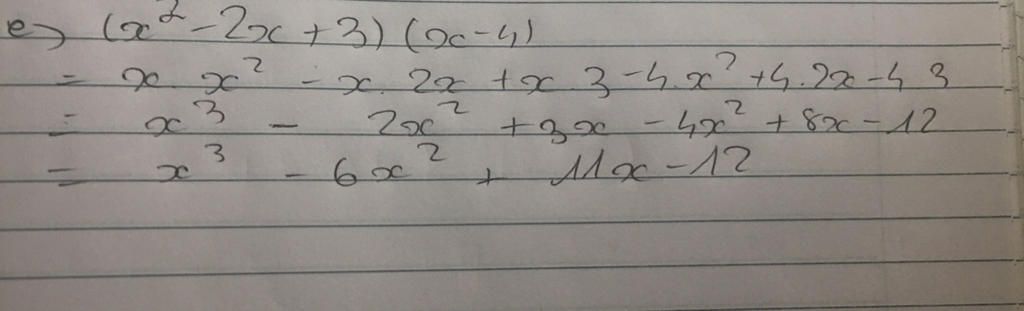 e) (x² - 2x + 3) (x - 4)
= x . x² - x . 2x + x . 3 - 4 . x² + 4 . 2x - 4 . 3
= x³ - 2x² + 3x - 4x² + 8x - 12
= x³ - 6x² + 11x - 12